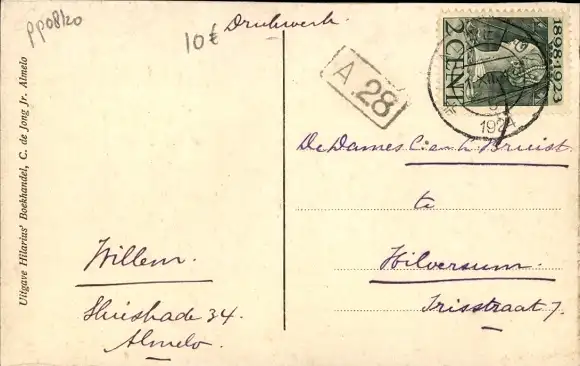 pp0820
10€
Drukwerk.
A 28
1898-1923
2 CENT
1924
De Dames C. en L. Bruist.
te
Hilversum.
Irisstraat 7.
Willem.
Sluiskade 34.
Almelo.
Uitgave Hilarius' Boekhandel, C. de Jong Jr. Almelo